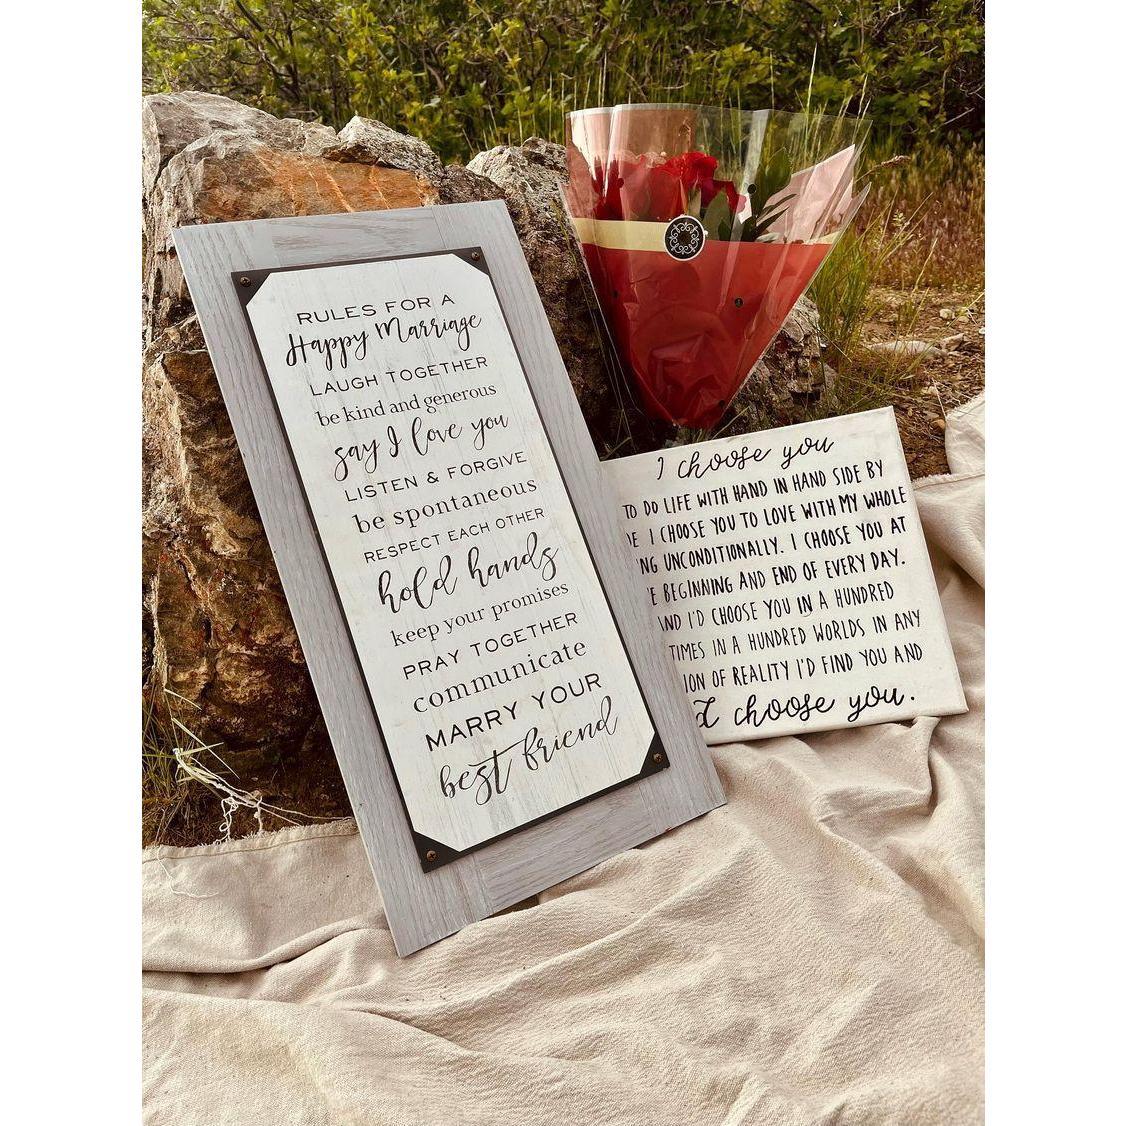 RULES FOR A
Happy Marriage
LAUGH TOGETHER
be kind and generous
say I love you
LISTEN & FORGIVE
be spontaneous
RESPECT EACH OTHER
hold hands
keep your promises
PRAY TOGETHER
communicate
MARRY YOUR
best friend
I choose you
TO DO LIFE WITH HAND IN HAND SIDE BY
I CHOOSE YOU TO LOVE WITH MY WHOLE
UNCONDITIONALLY. I CHOOSE YOU AT
BEGINNING AND END OF EVERY DAY.
AND I'D CHOOSE YOU IN A HUNDRED
TIMES IN A HUNDRED WORLDS IN ANY
OF REALITY I'D FIND YOU AND
I choose you.